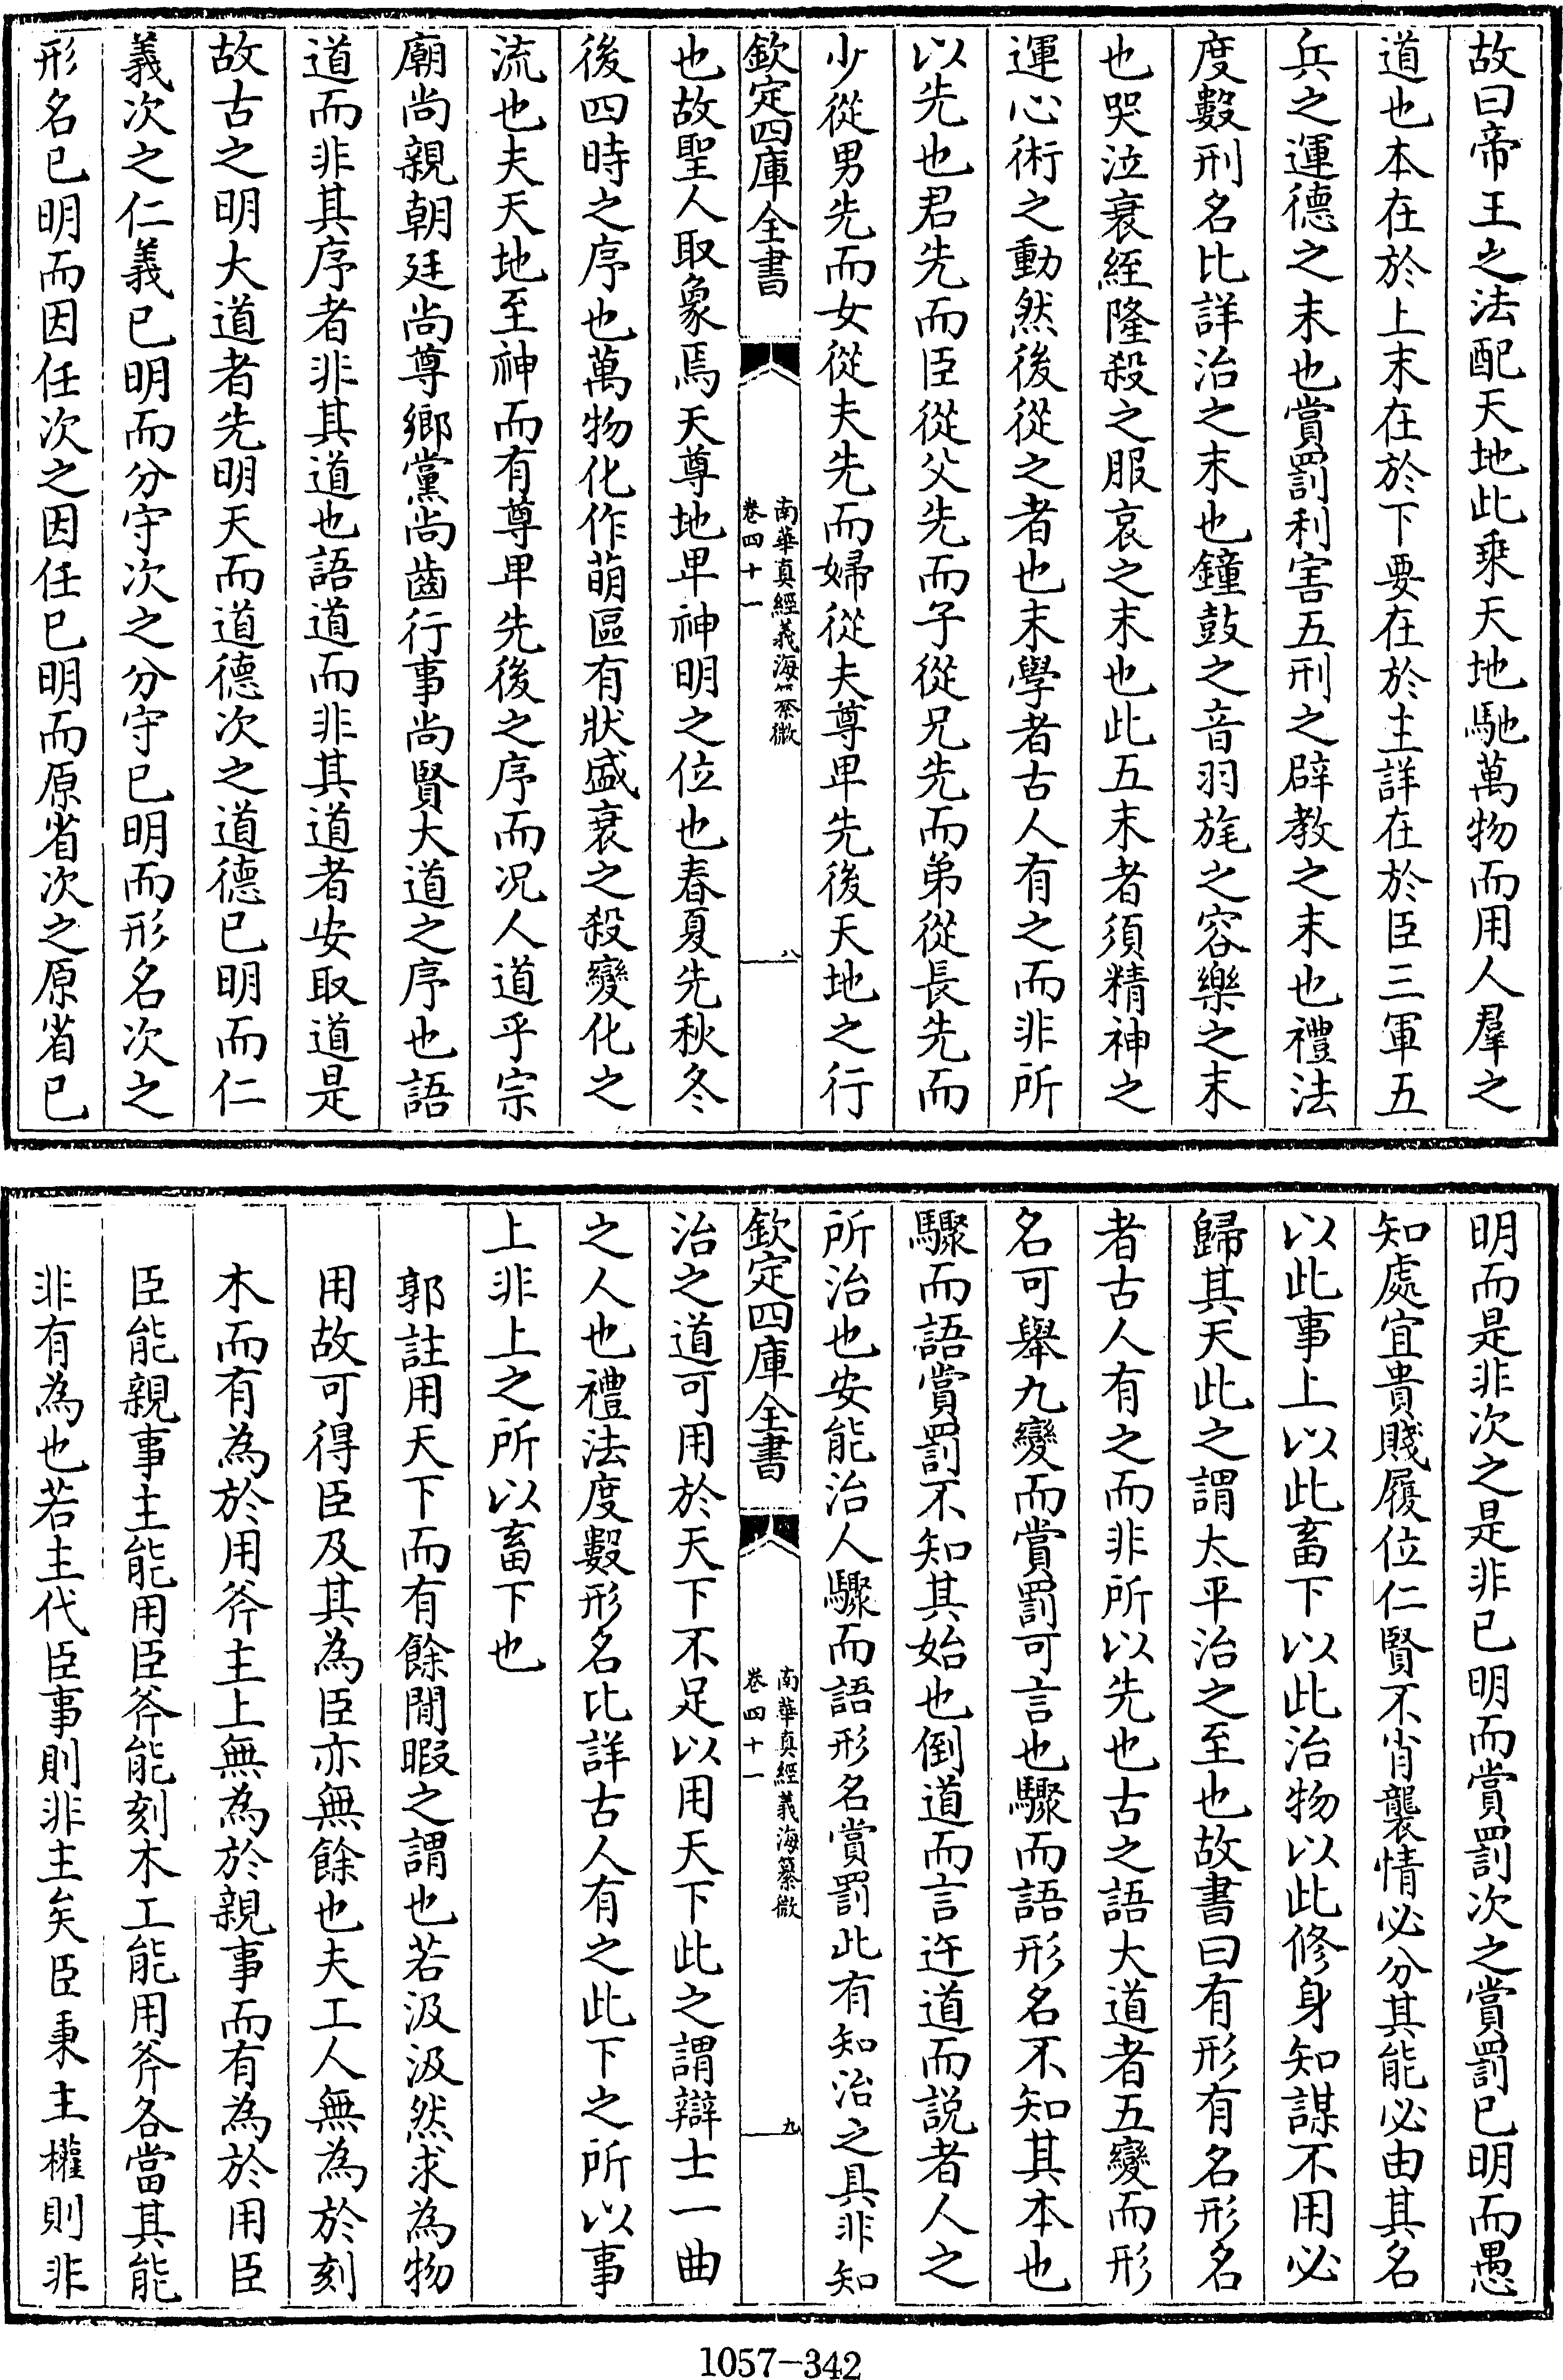 故曰帝王之法配天地此乘天地馳萬物而用人羣之
道也本在於上末在於下要在於主詳在於臣三軍五
兵之運德之末也賞罰利害五刑之辟教之末也禮法
度數刑名比詳治之末也鐘鼓之音羽旄之容樂之末
也哭泣衰絰隆殺之服哀之末也此五末者須精神之
運心術之動然後從之者也末學者古人有之而非所
以先也君先而臣從父先而子從兄先而弟從長先而
少從男先而女從夫先而婦從夫尊卑先後天地之行
欽定四庫全書
南華真經義海纂微
卷四十一
八
也故聖人取象焉天尊地卑神明之位也春夏先秋冬
後四時之序也萬物化作萌區有狀盛衰之殺變化之
流也夫天地至神而有尊卑先後之序而況人道乎宗
廟尚親朝廷尚尊鄉黨尚齒行事尚賢大道之序也語
道而非其序者非其道也語道而非其道者安取道是
故古之明大道者先明天而道德次之道德已明而仁
義次之仁義已明而分守次之分守已明而形名次之
形名已明而因任次之因任已明而原省次之原省已
明而是非次之是非已明而賞罰次之賞罰已明而愚
知處宜貴賤履位仁賢不肖襲情必分其能必由其名
以此事上以此畜下以此治物以此修身知謀不用必
歸其天此之謂太平治之至也故書曰有形有名形名
者古人有之而非所以先也古之語大道者五變而形
名可舉九變而賞罰可言也驟而語形名不知其本也
驟而語賞罰不知其始也倒道而言迕道而説者人之
所治也安能治人驟而語形名賞罰此有知治之具非知
欽定四庫全書
南華真經義海纂微
卷四十一
九
治之道可用於天下不足以用天下此之謂辯士一曲
之人也禮法度數形名比詳古人有之此下之所以事
上非上之所以畜下也
郭註用天下而有餘閒暇之謂也若汲汲然求為物
用故可得臣及其為臣亦無餘也夫工人無為於刻
木而有為於用斧主上無為於親事而有為於用臣
臣能親事主能用臣斧能刻木工能用斧各當其能
非有為也若主代臣事則非主矣臣秉主權則非
1057-342